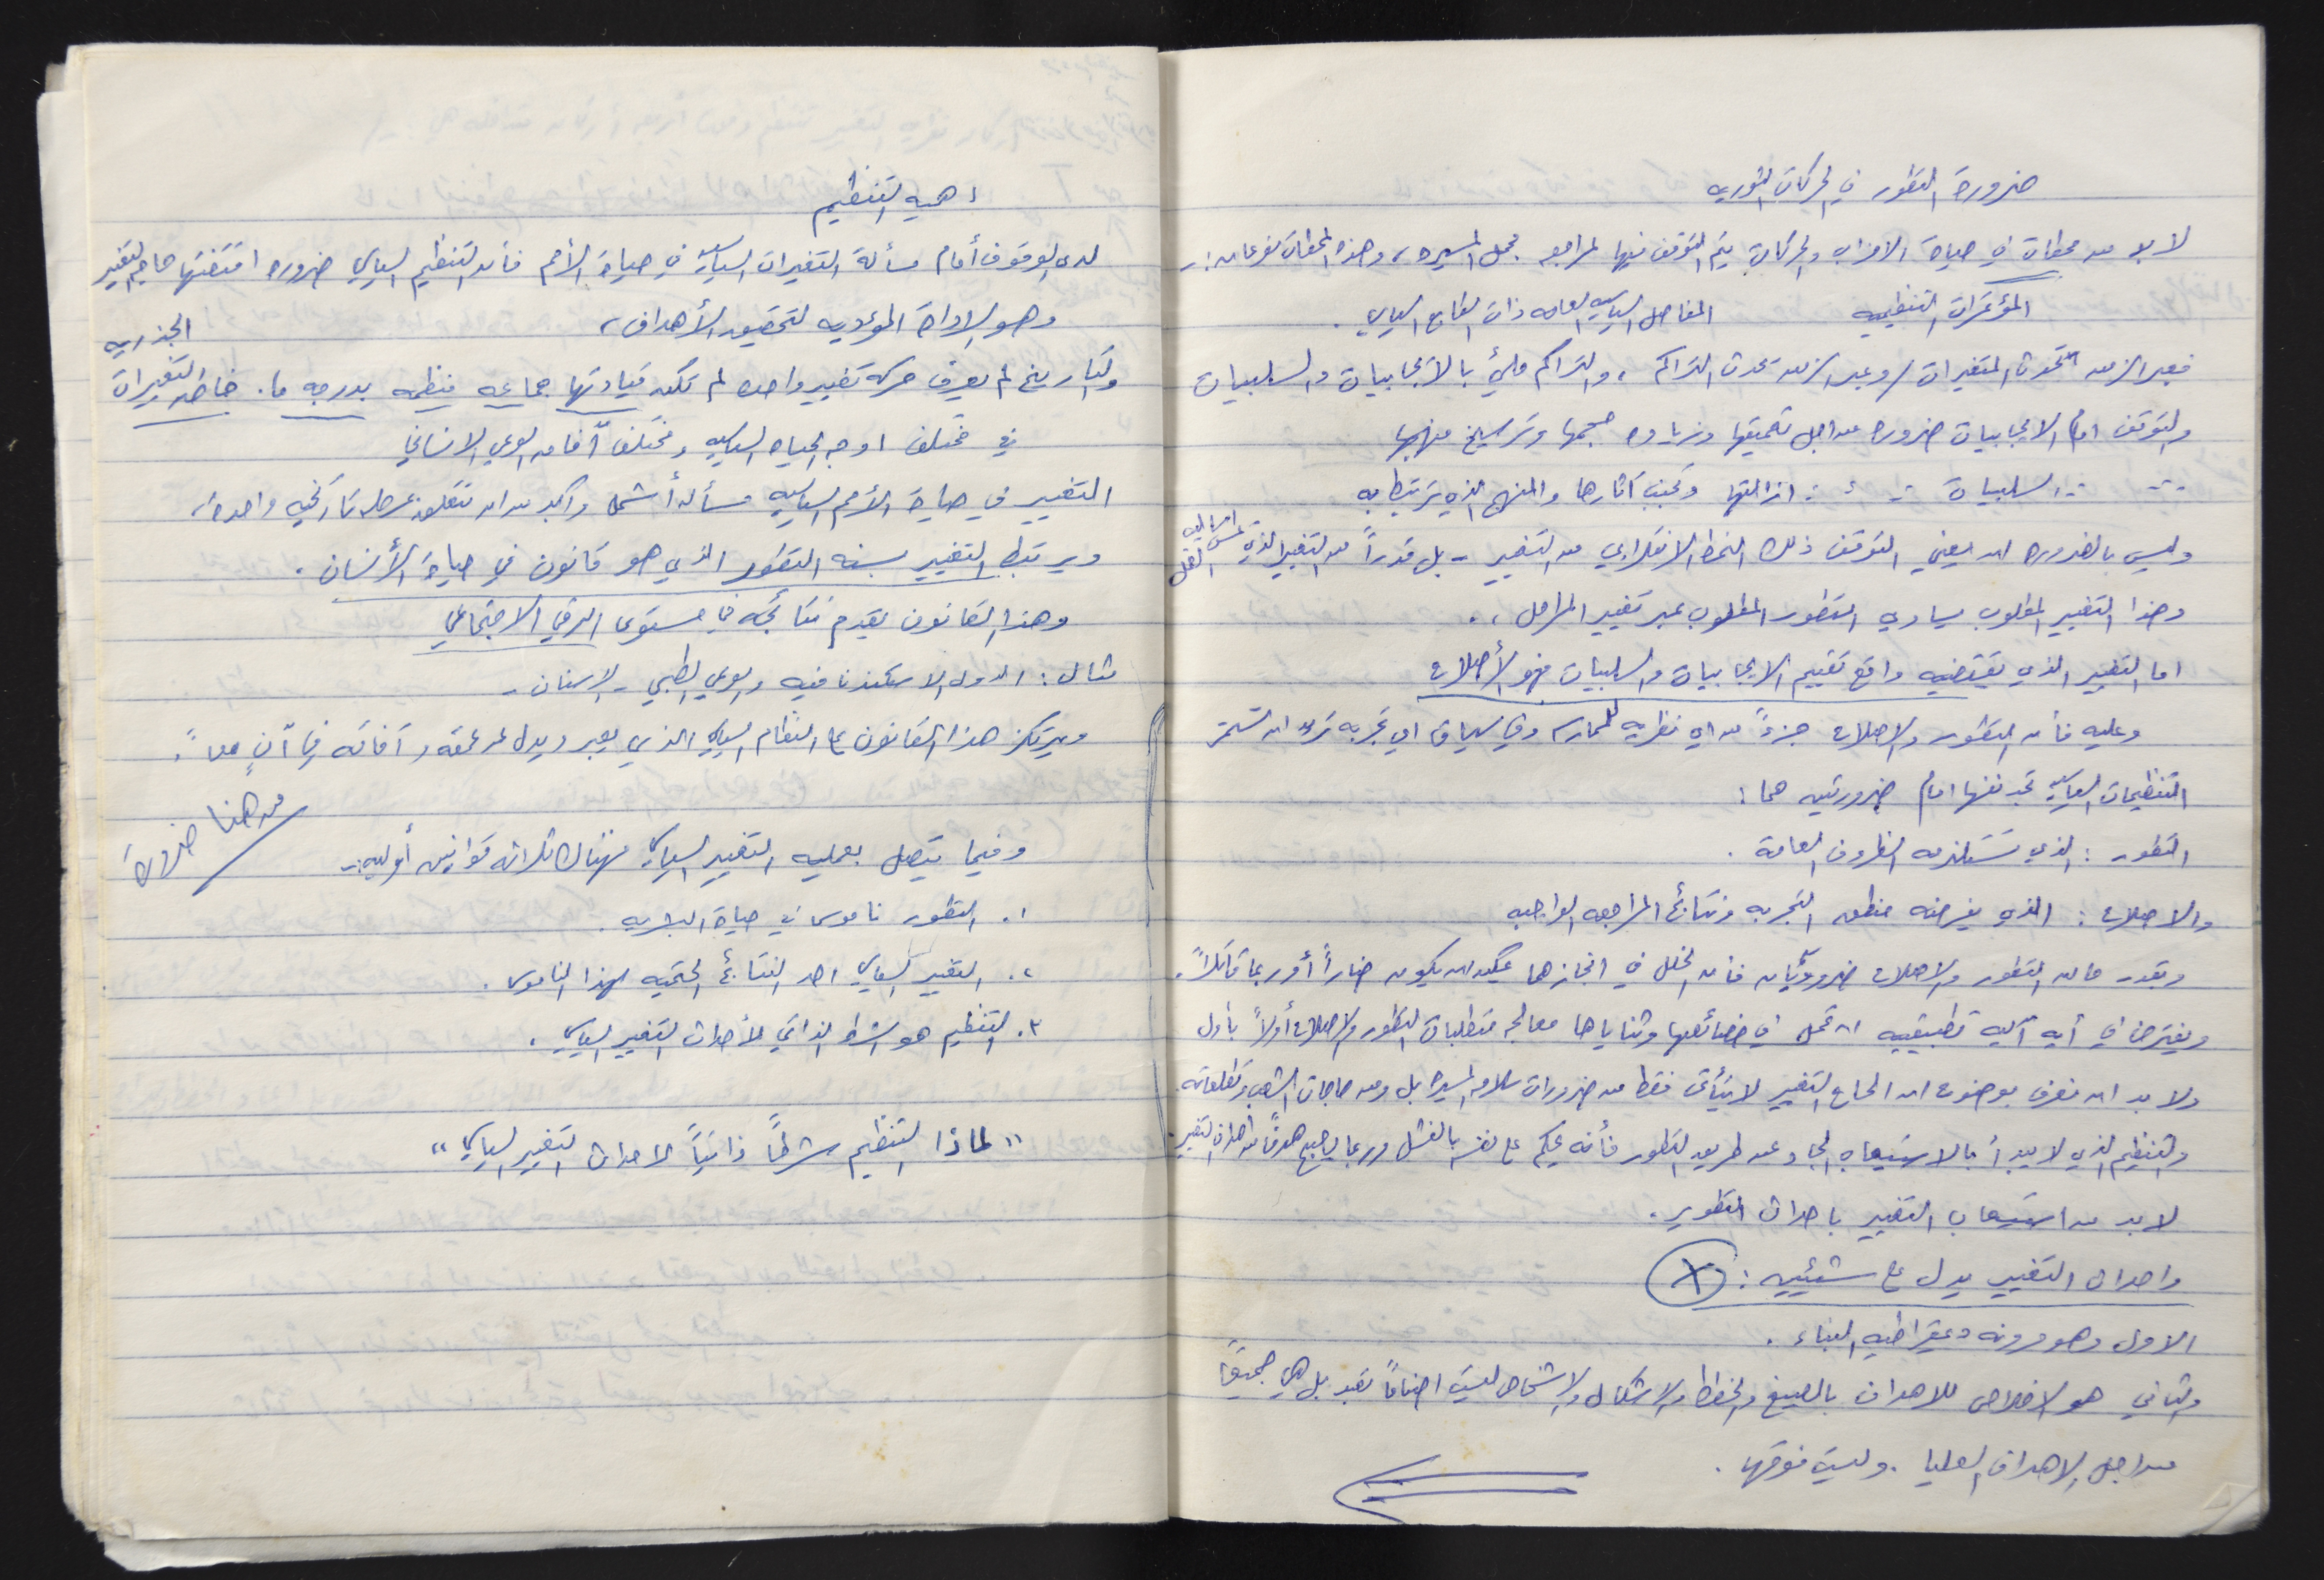 ضرورة التطور في الحركات الثورية
لا بد من محطات في حياة الاحزاب والحركات يتم التوقف فيها لمراجعة مجمل المسيرة، وهذه المحطات نوعان:-
المؤتمرات التنظيمية المفاصل السياسية العامة ذات الطابع السياسي.
فعبر الزمن تحدث المتغيرات / وعبر الزمن يحدث التراكم، والتراكم مليئ بالايجابيات والسلبيات
والتوقف امام الايجابيات ضروره من اجل تعميقها وزياده حجمها وترسيخ منهجها
" " السلبيات " " ازالتها وتجنب آثارها والمنهج الذي ترتبط به
وليس بالضروره ان يعني التوقف ذلك النمط الانقلابي من التغيير - بل قدراً من التغيير الذي يمس اساليب العمل
وهذا التغيير المطلوب يساوي التطور المطلوب عبر تغيير المراحل،.
اما التغيير الذي يقتضيه واقع تقييم الايجابيات والسلبيات فهو الأصلاح
وعليه فأن التطور والاصلاح جزءً من اي نظريه للممارسه وفي سياق اي تجربه تريد ان تستمر
التنظيمات السياسية تجد نفسها امام ضرورتين هما:
التطور: الذي تستلزمه الظروف العامة.
والاصلاح: الذي يفرضه منطق التجربه ونتائج المراجعه الواجبه
وبقدر ما ان التطور والاصلاح ضروريّان فأن الخلل في انجازهما يمكن ان يكون ضاراً أو ربما قاتلاً.
ويفترض في أيه آليه تطبيقيه ان تحمل في خصائصها وثناياها معالجه متطلبات التطور والاصلاح أولاً بأول
ولا بد ان نعرف بوضوح ان الحاح التغيير لا يتأتى فقط من ضرورات سلامه المسيره بل ومن حاجات الشعب وتطلعاته.
والتنظيم الذي لا يبدأ بالاستيعاب الجاد عن طريق التطور فأنه يحكم على نفسه بالفشل وربما يصبح هدفاً من اهداف التغيير.
لا بد من استيعاب التغيير باحداث التطوير.
واحداث التغيير يدل على شيئين: X
الاول وهو مرونه ديمقراطيه البناء.
والثاني هو الاخلاص للاهداف بالصيغ والخطط والاشكال والاشخاص ليست اصناماً تعبد بل هي جميعاً
من اجل الاهداف العليا. وليست فوقها.
اهميه التنظيم
لدى الوقوف أمام مسألة التغيرات السياسيه في حياة الأمم فأن التنظيم السياسي ضروره اقتضتها حاجه التغيير
وهو الاداة المؤديه لتحقيق الأهداف،
والتاريخ لم يعرف حركه تغيير واحده لم تكن قيادتها جماعيه منظمه بدرجه ما. خاصه التغيرات الجذريه
في مختلف اوجه الحياه السياسيه ومختلف آفاق الوعي الانساني
التغيير في حياة الأمم السياسيه مسألة أشمل واكبر من ان تتعلق بمرحله تاريخيه واحدة،
ويرتبط التغيير بسنه التطور الذي هو قانون في حياة الأنسان.
وهذا القانون يقدم نتائجه في مستوى الرقي الاجتماعي
مثال: الدول الاسكندنافيه والوعي الطبي - الاسنان -
ويرتكز هذا القانون على النظام السياسي الذي يعبر ويدل على عمقه وآفاقه في آنٍ معاً.
من هنا
وفيما يتصل بعمليه التغيير السياسي فهنالك ثلاثه قوانين أوليه:-
١. التطور ناموس في حياة البشريه.
٢. التغيير السياسي احد النتائج الحتميه لهذا الناموس.
٣. التنظيم هو الشرط الذاتي لأحداث التغيير السياسي.
"لماذا التنظيم شرطاً ذاتياً لاحداث التغيير السياسي"